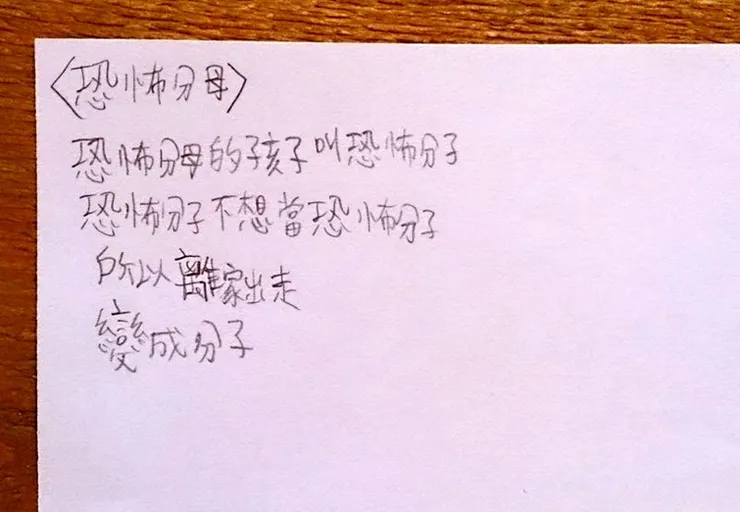 〈恐怖分母〉
恐怖分母的孩子叫恐怖分子
恐怖分子不想當恐怖分子
所以離家出走
變成分子